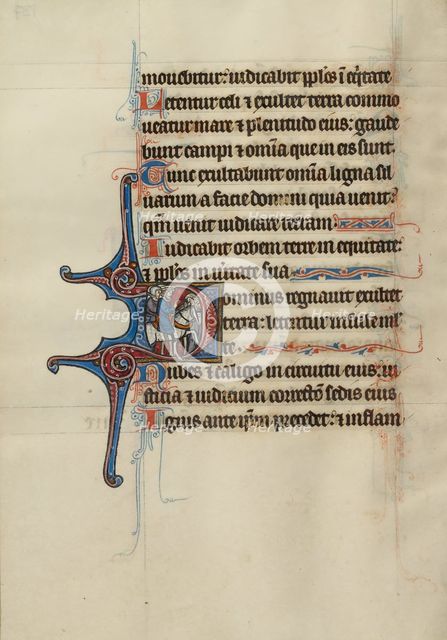 mouebitur: iudicabit pp̄les ī eq̄tate
Letentur celi & exultet terra commo
ueatur mare & plenitudo eius: gaude
bunt campi & om̄ia que in eis sunt.
Tunc exultabunt om̄ia ligna sil
uarum a facie domini quia uenit:
qm̄ uenit iudicare terram.
Iudicabit orbem terre in equitate:
& pp̄los in ueritate sua
Dominus regnauit exultet
terra: letentur insule ml̄
te.
Nubes & caligo in circuitu eius: iu
sticia & iudicium correctio sedis eius
Ignis ante ip̄m precedet: & inflam